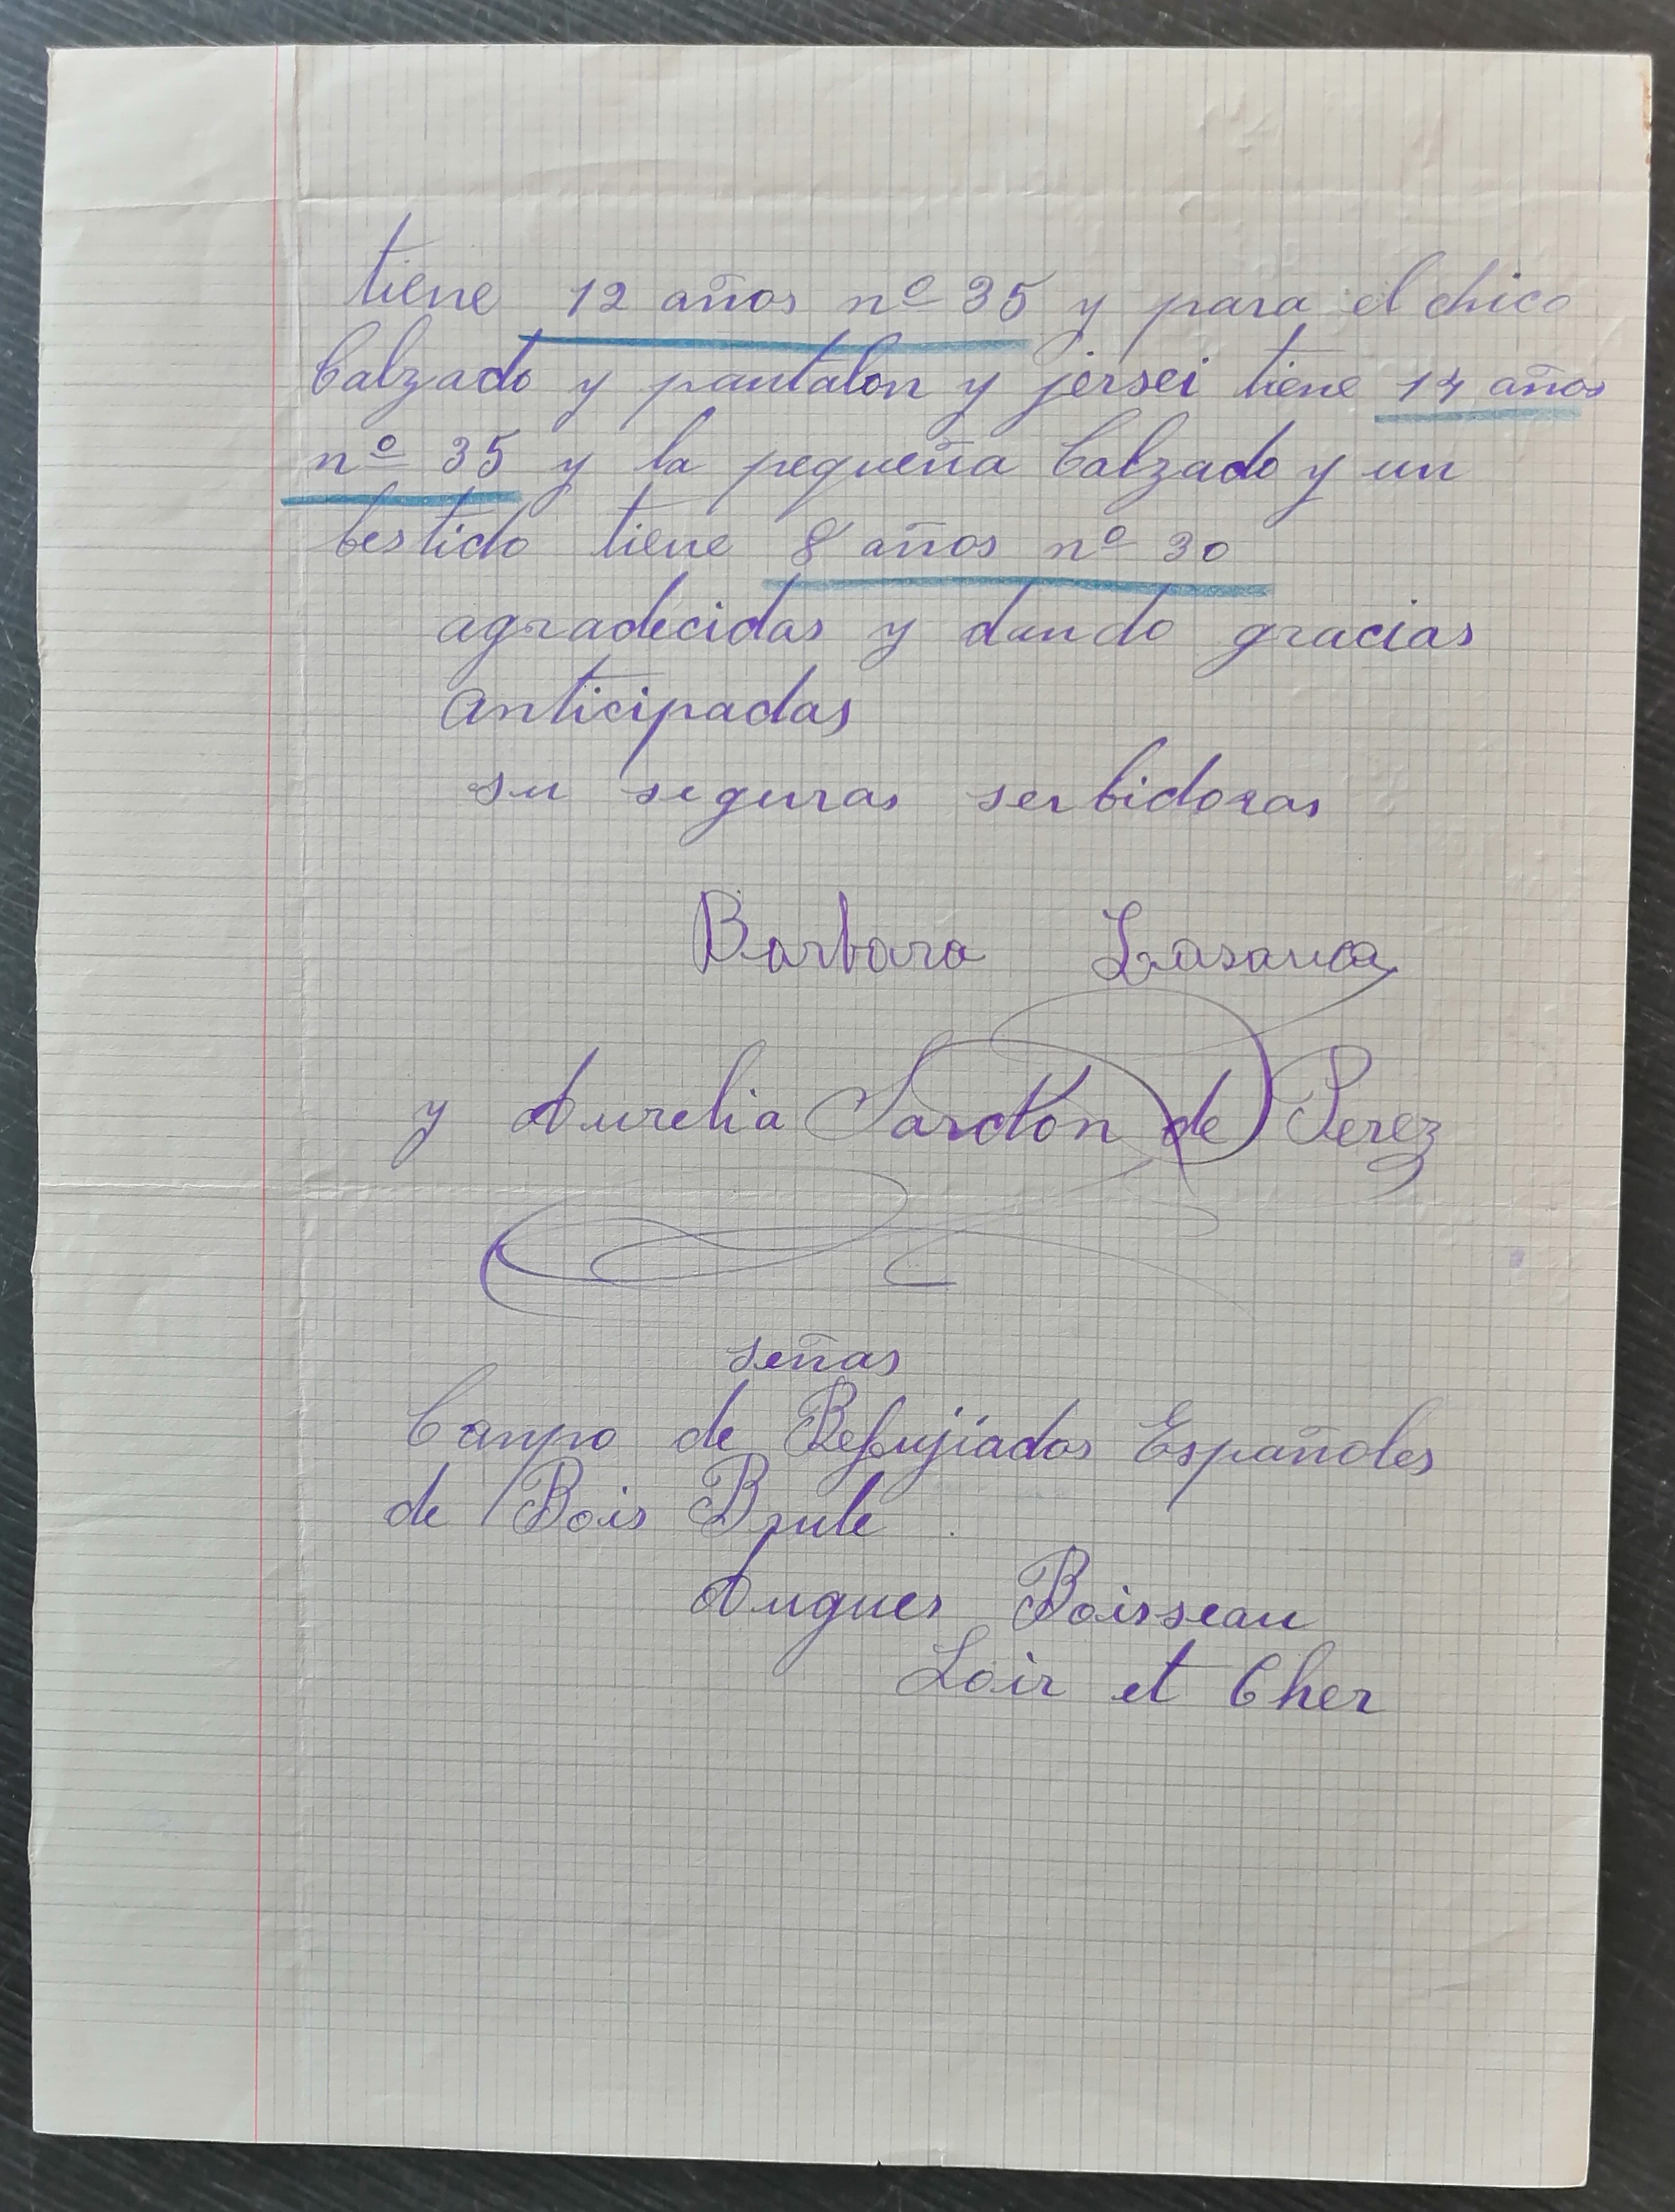 tiene 12 años nº 35 y para el chico
Calzado y pantalon y jersei tiene 14 años
nº 35 y la pequeña Calzado y un
bestido tiene 8 años nº 30
agradecidas y dando gracias
anticipadas
su seguras serbidoras
Barbara Lasauca
y Aurelia Sardón de Perez
señas
Canpo de Refujiados Españoles
de Bois Brule
Augues Boisseau
Loir et Cher